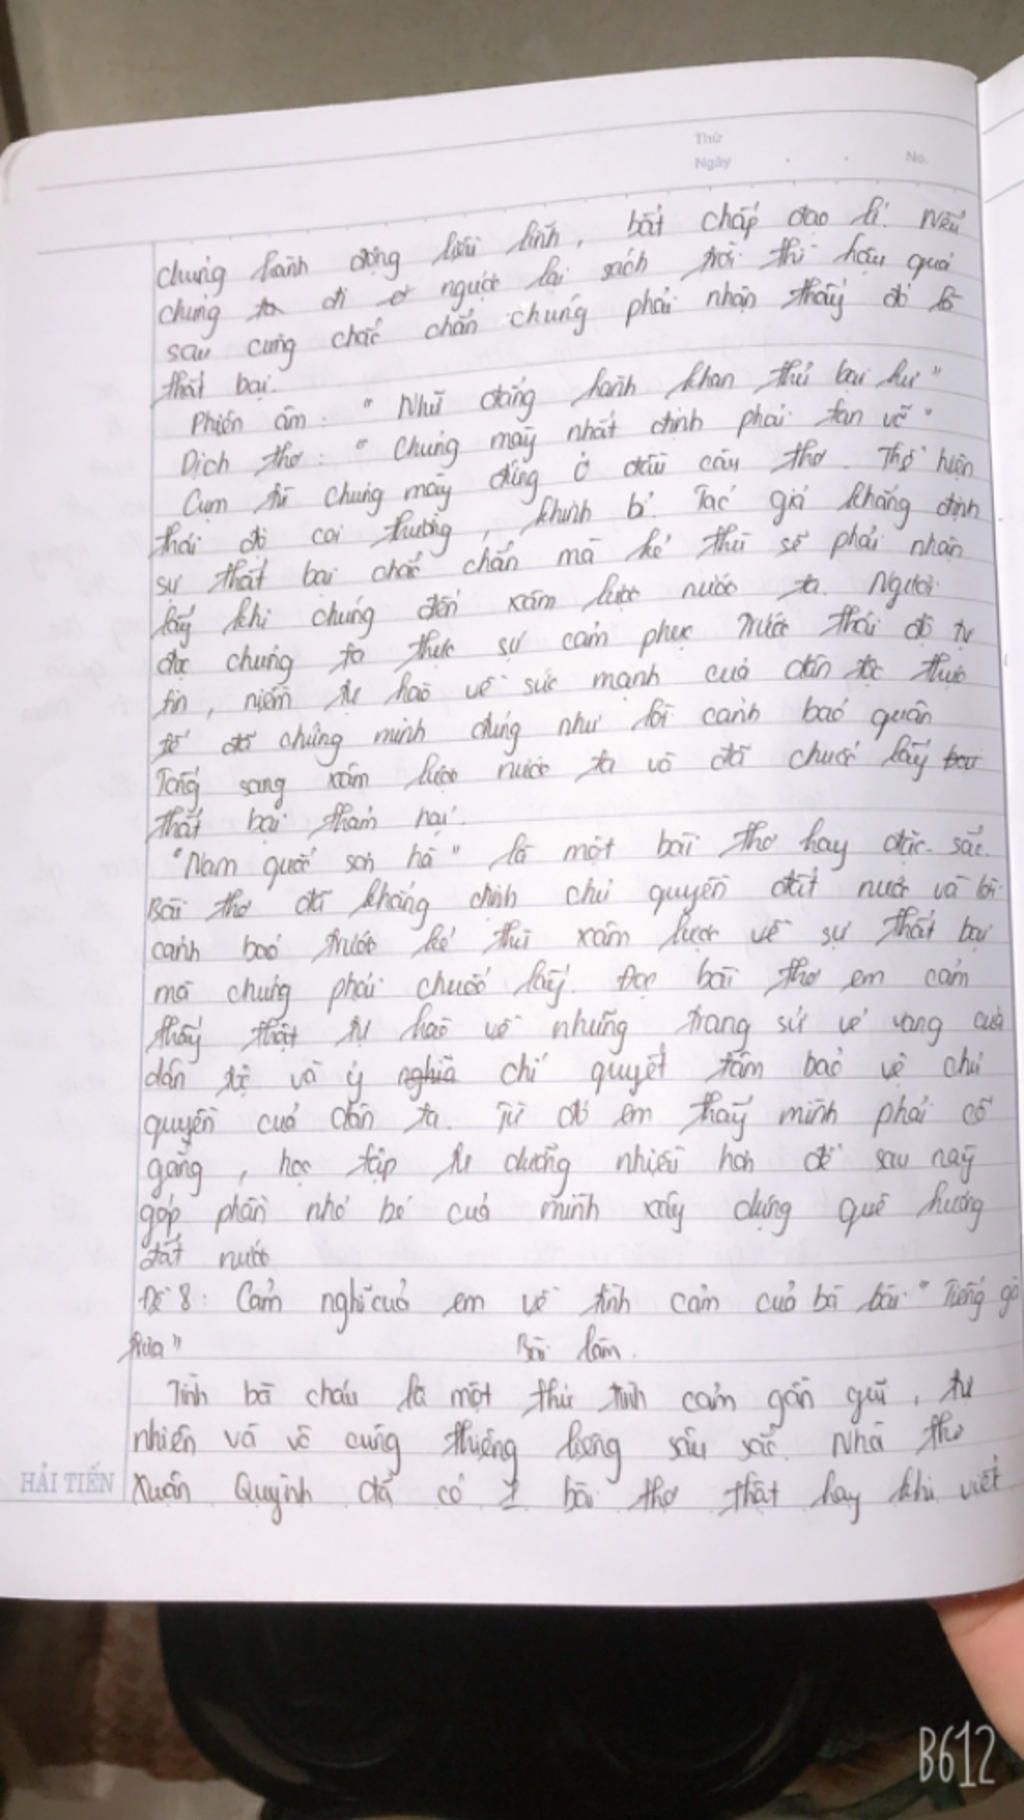 Thứ
Ngày No.
chúng hành động liều lĩnh, bất chấp đạo lí. Nếu
chúng ta đi ngược lại sách trời thì hậu quả
sau cùng chắc chắn chúng phải nhận thấy đó là
thất bại.
Phiên âm: " Nhữ đẳng hành khan thủ bại hư "
Dịch thơ: " Chúng mày nhất định phải tan vỡ "
Cụm từ chúng mày đứng ở đầu câu thơ. Thể hiện
thái độ coi thường, khinh bỉ. Tác giả khẳng định
sự thất bại chắc chắn mà kẻ thù sẽ phải nhận
lấy khi chúng đến xâm lược nước ta. Người
đọc chúng ta thực sự cảm phục trước thái độ tự
tin, niềm tự hào về sức mạnh của dân tộc thực
tế đã chứng minh đúng như lời cảnh báo quân
Tống sang xâm lược nước ta và đã chuốc lấy bại
thất bại thảm hại.
"Nam quốc sơn hà" là một bài thơ hay đặc sắc.
Bài thơ đã khẳng định chủ quyền đất nước và lời
cảnh báo trước kẻ thù xâm lược về sự thất bại
mà chúng phải chuốc lấy. Đọc bài thơ em cảm
thấy thật tự hào về những trang sử vẻ vang của
dân tộc và ý nghĩa chí quyết tâm bảo vệ chủ
quyền của dân ta. Từ đó em thấy mình phải cố
gắng, học tập tu dưỡng nhiều hơn để sau này
góp phần nhỏ bé của mình xây dựng quê hương
đất nước
Đề 8: Cảm nghĩ của em về tình cảm của bà bài " Tiếng gà
trưa"   Bài làm.
Tình bà cháu là một thứ tình cảm gần gũi, tự
nhiên và vô cùng thiêng liêng sâu sắc. Nhà thơ
Xuân Quỳnh đã có 1 bài thơ thật hay khi viết
HẢI TIẾN
B612